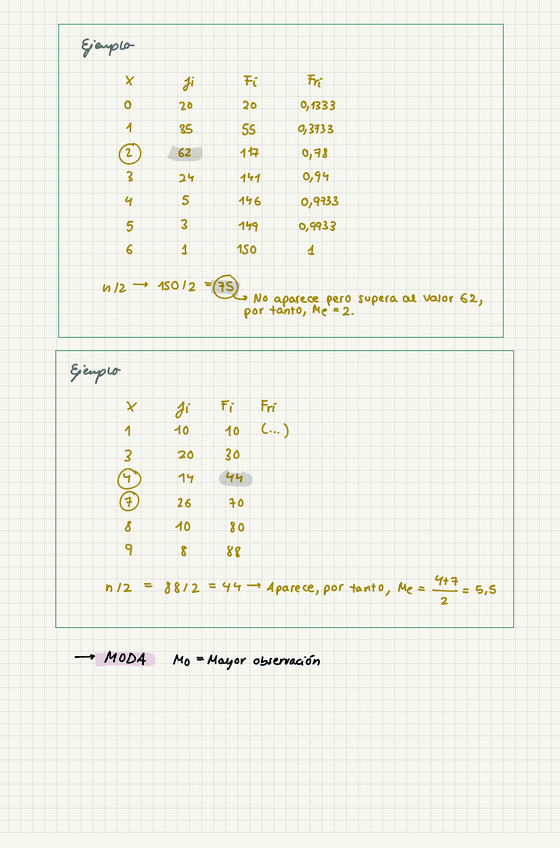 Ejemplo
X fi Fi Fri
0 20 20 0,1333
1 35 55 0,3733
2 62 117 0,78
3 24 141 0,94
4 5 146 0,9733
5 3 149 0,9933
6 1 150 1
n/2 → 150/2 = 75
→ No aparece pero supera al valor 62,
por tanto, Me = 2.
Ejemplo
X fi Fi Fri
1 10 10 (...)
3 20 30
4 14 44
7 26 70
8 10 80
9 8 88
n/2 = 88/2 = 44 → Aparece, por tanto, Me = 4+7/2 = 5,5
→ MODA Mo = Mayor observación